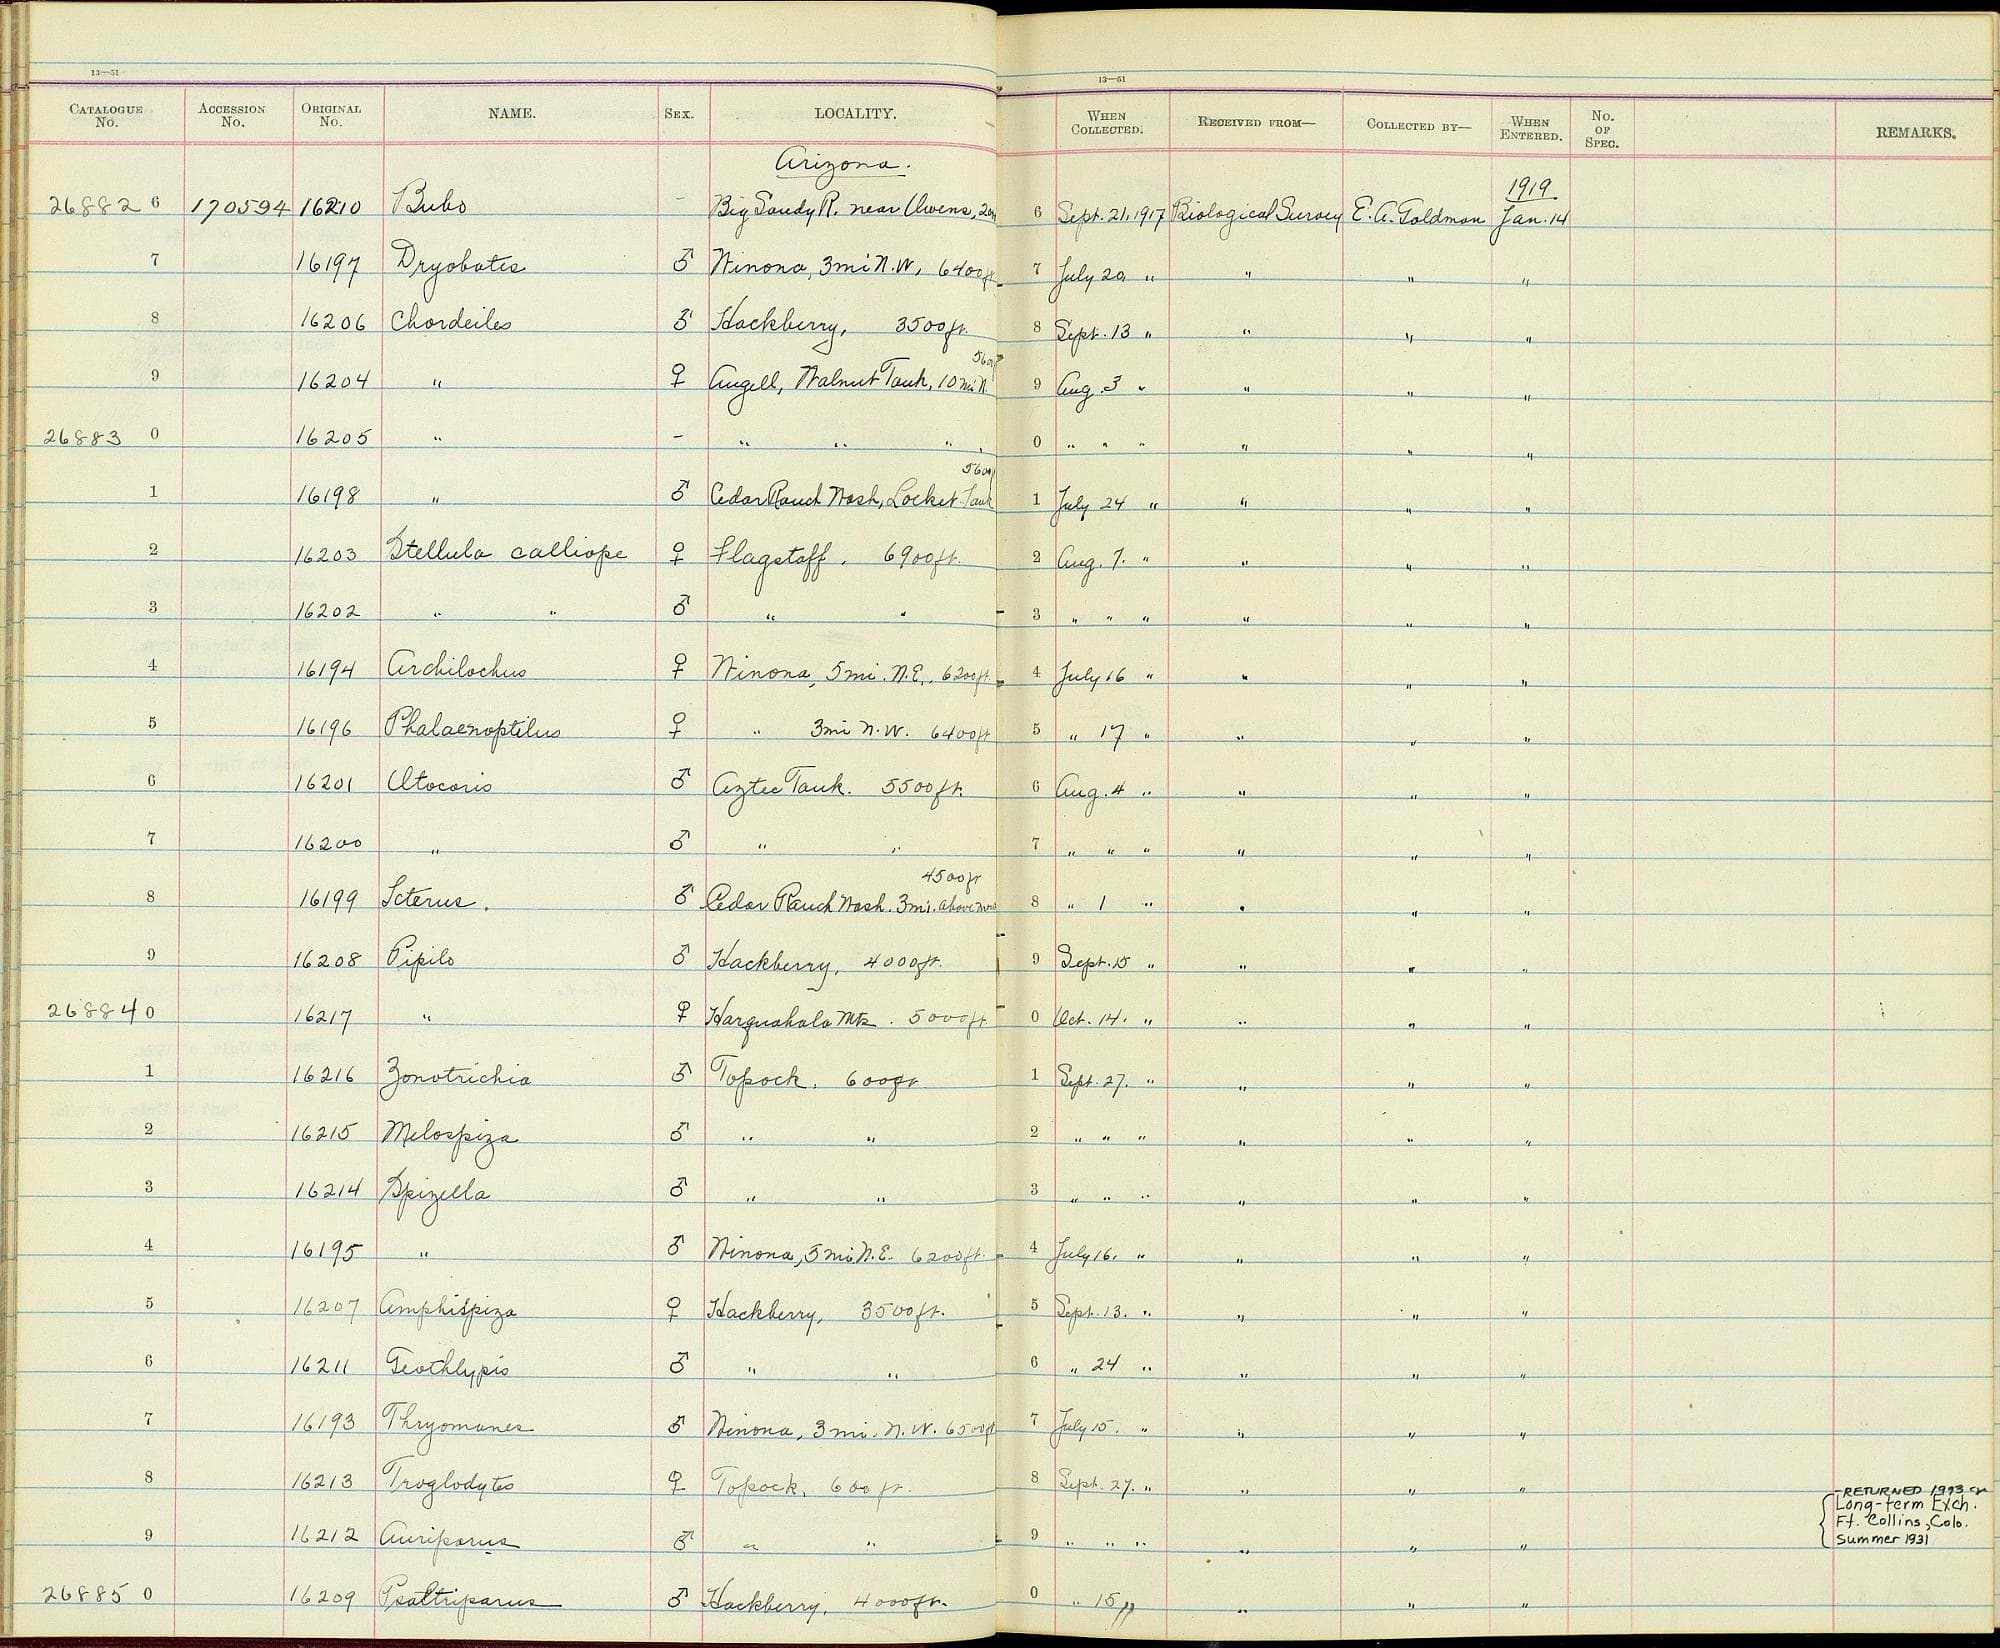 13—51
13—51
CATALOGUE No. ACCESSION No. ORIGINAL No. NAME. SEX. LOCALITY. WHEN COLLECTED. RECEIVED FROM— COLLECTED BY— WHEN ENTERED. No. OF SPEC. REMARKS.
Arizona.
1919
26882 6 170594 16210 Bubo - Big Sandy R. near Owens, 6 Sept. 21, 1917 Biological Survey E. A. Goldman Jan. 14
7 16197 Dryobates ♂ Winona, 3 mi N.W, 6400ft 7 July 20 " " " "
8 16206 Chordeiles ♂ Hackberry, 3500 ft. 8 Sept. 13 " " " "
9 16204 " ♀ Angell, Walnut Tank, 10 mi N 5600 9 Aug. 3 " " " "
26883 0 16205 " - " " " 0 " " " " " "
1 16198 " ♂ Cedar Ranch Wash, Locket Tank 5600 1 July 24 " " " "
2 16203 Stellula calliope ♀ Flagstaff, 6900 ft. 2 Aug. 7. " " " "
3 16202 " " ♂ " " 3 " " " " " "
4 16194 Archilochus ♀ Winona, 5 mi. N.E. 6200 ft. 4 July 16 " " " "
5 16196 Phalaenoptilus ♀ " 3 mi N.W. 6400 ft 5 " 17 " " " "
6 16201 Otocoris ♂ Aztec Tank. 5500 ft. 6 Aug. 4 " " " "
7 16200 " ♂ " " 7 " " " " " "
8 16199 Icterus. ♂ Cedar Ranch Wash. 3 mi. above 4500 ft 8 " 1 " " " "
9 16208 Pipilo ♂ Hackberry, 4000 ft. 9 Sept. 15 " " " "
26884 0 16217 " ♀ Harquahala Mts. 5000 ft 0 Oct. 14. " " " "
1 16216 Zonotrichia ♂ Topock. 600 ft 1 Sept. 27. " " " "
2 16215 Melospiza ♂ " " 2 " " " " " "
3 16214 Spizella ♂ " " 3 " " " " " "
4 16195 " ♂ Winona, 5 mi N.E. 6200 ft. 4 July 16. " " " "
5 16207 Amphispiza ♀ Hackberry, 3500 ft. 5 Sept. 13. " " " "
6 16211 Geothlypis ♂ " " 6 " 24 " " " "
7 16193 Thryomanes ♂ Winona, 3 mi. N.W. 6500 ft 7 July 15. " " " "
8 16213 Troglodytes ♀ Topock, 600 ft. 8 Sept. 27. " " " "
RETURNED 1993
Long-term Exch.
Ft. Collins, Colo.
Summer 1931
9 16212 Auriparus ♂ " " 9 " " " " " "
26885 0 16209 Psaltriparus ♂ Hackberry, 4000 ft. 0 " 15 " " " "